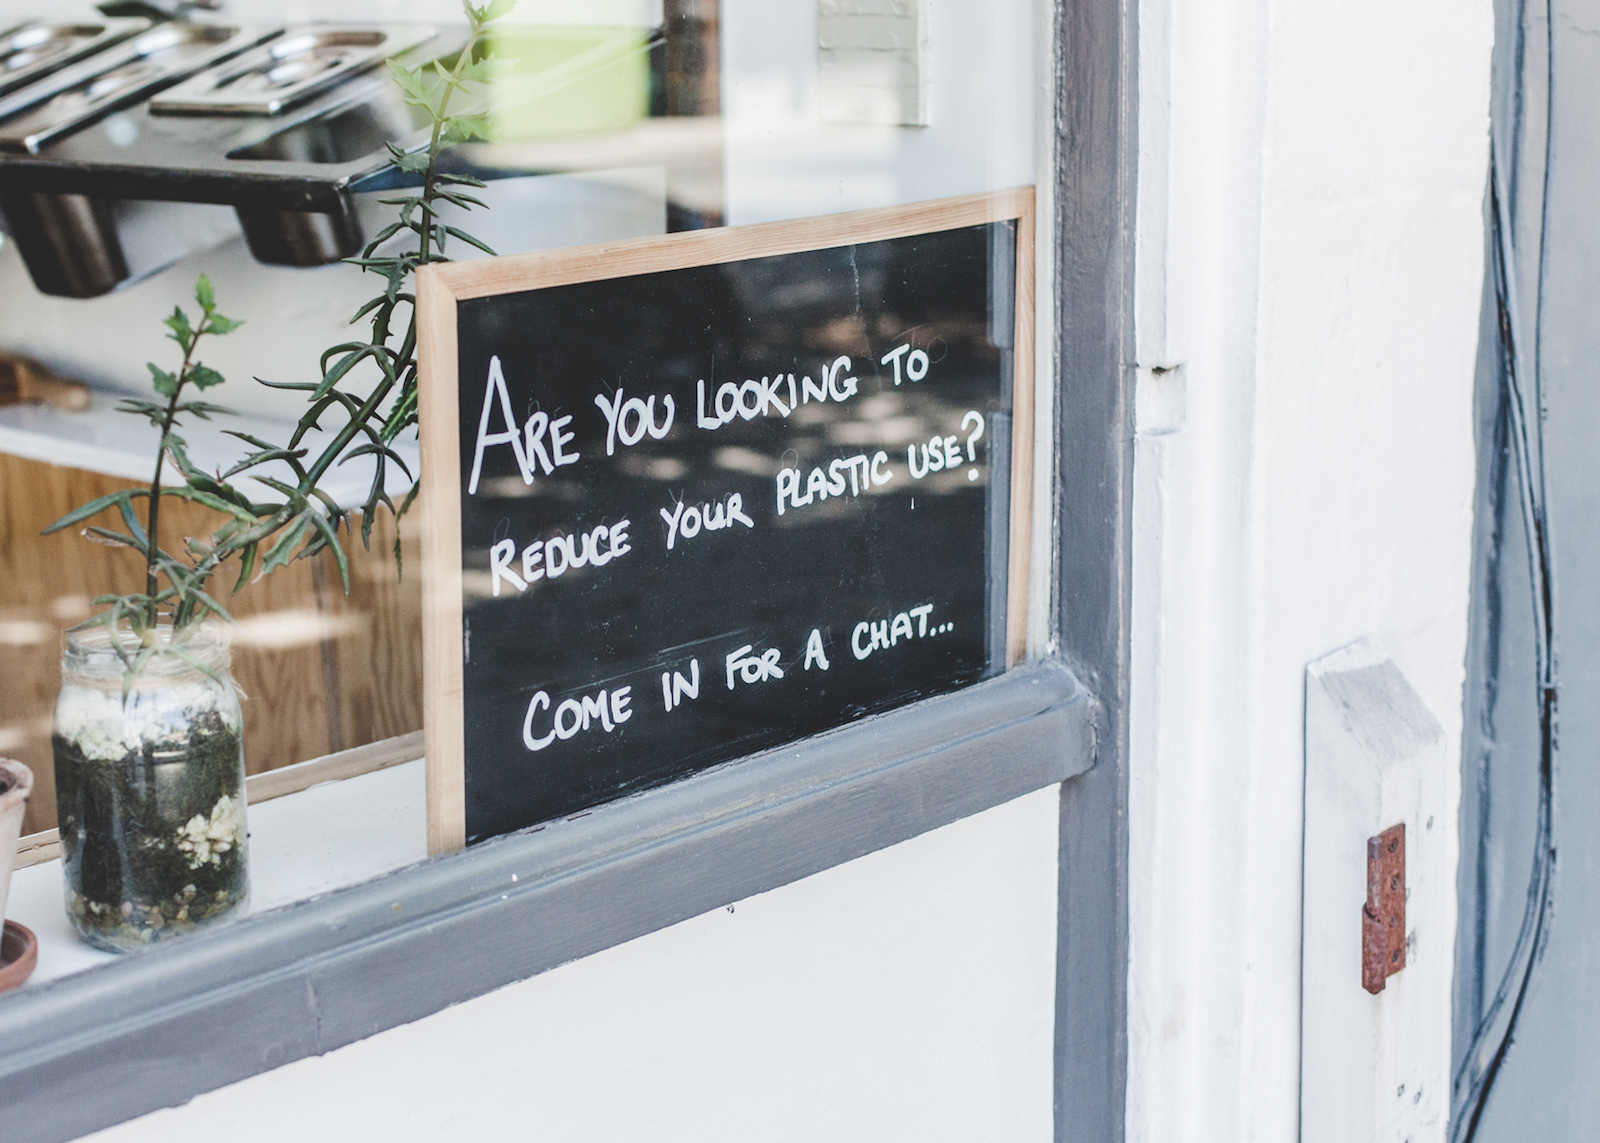 ARE YOU LOOKING TO
REDUCE YOUR PLASTIC USE?
COME IN FOR A CHAT...